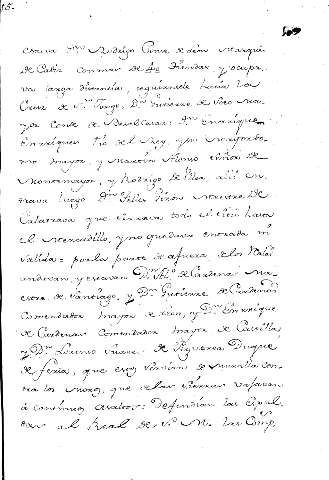 15.
estava Dn. Rodrigo Ponce de León Marqués
de Cadiz con mas de 40 tiendas y ocupa
va larga distancia, seguiansele hacia la
Cruz de Sn. Jorge, Dn. Gutierre de Soto Ma
yor Conde de Benalcazar: Dn. Enrrique
Enrriquez tio del Rey, y su mayordo
mo mayor, y Martin Alonso Señor de
Montemayor, y Rodrigo de Ulloa allí en
trava luego Dn. Tellez Giron Maestre de
Calatrava que cerrava todo el sitio hasta
el Mercadillo, y no quedava entrada ni
salida: por la parte de afuera de los Rea
andavan, y estavan Dn. Alo. de Cardenas Ma
estre de Santiago, y Dn. Gutierre de Cardenas
Comendador mayor de Leon, y Dn. Enrrique
de Cardenas Comendador mayor de Castilla
y Dn. Lorenzo Suarez de Figueroa Duque
de feria, que estos servian de muralla con
tra los Moros, que de las sierras vajavan
á continuos asaltos: Defendian las espal
das al Real de S. M. las Comp.